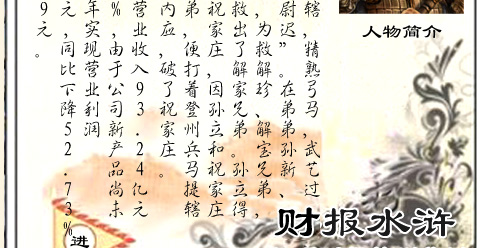 人物简介
辖，精熟弓马，武艺过
尉迟”。在弟弟孙新、
，为救解珍、解宝兄弟
救，出了解家兄弟。孙立得
祝家庄，因孙立和祝家庄
弟，便打着登州兵马提辖
内应，破了祝家庄。
营业收入93.24亿元
%，由于公司新产品尚未
年，实现营业利润
元，同比下降52.73%
9元。
财报水浒
进